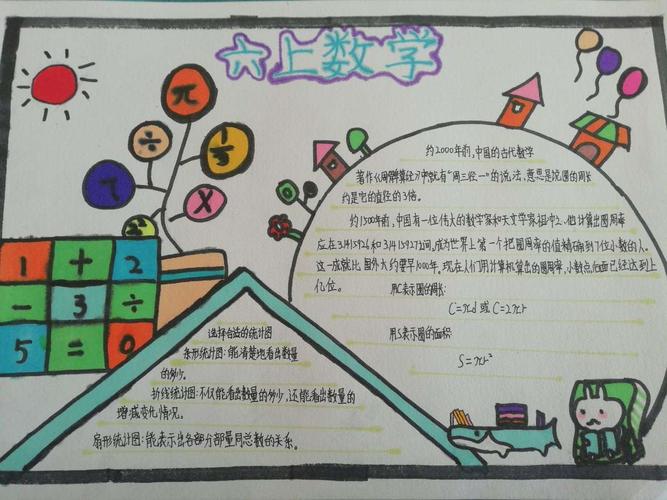 六上数学
π
÷
1/3
7
X
1 + 2
- 3 ÷
5 = 0
约2000年前,中国的古代数学
著作《周髀算经》中就有"周三径一"的说法,意思是说圆的周长
约是它的直径的3倍。
约1500年前,中国有一位伟大的数学家和天文学家祖冲之。他计算出圆周率
应在3.1415926和3.1415927之间,成为世界上第一个把圆周率的值精确到7位小数的人。
这一成就比国外大约要早1000年。现在人们用计算机算出的圆周率,小数点后面已经达到上
亿位。
用C表示圆的周长:
C=πd 或 C=2πr
用S表示圆的面积:
S=πr²
选择合适的统计图
条形统计图:能清楚地看出数量
的多少。
折线统计图:不仅能看出数量的多少,还能看出数量的
增减变化情况。
扇形统计图:能表示出各部分数量同总数的关系。